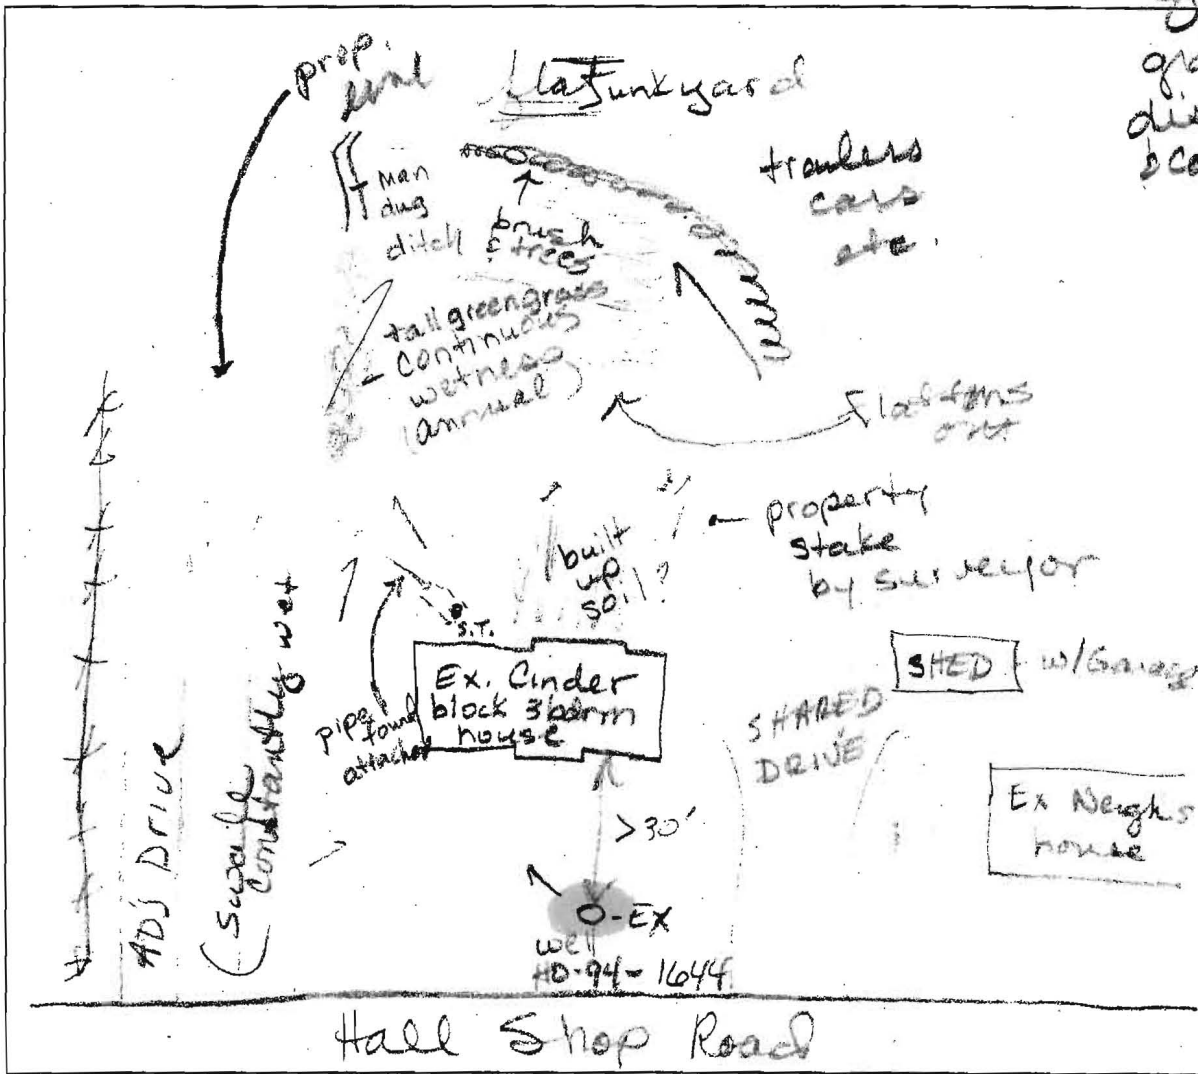 prop.
Junkyard
gra
dis
trailers
cars
etc.
man
dug
ditch
brush
& trees
tall green grass
continuous
wetness
(annual)
flattens
out
property
stake
by surveyor
built
up
soil?
S.T.
Ex. Cinder
block 3 bdrm
house
pipe
found
attached
SHED
w/Garag
SHARED
DRIVE
Ex Neigh's
house
>30'
O-EX
well
HO-94-1644
ADJ DRIVE
(Swaile
constantly wet
Hall Shop Road